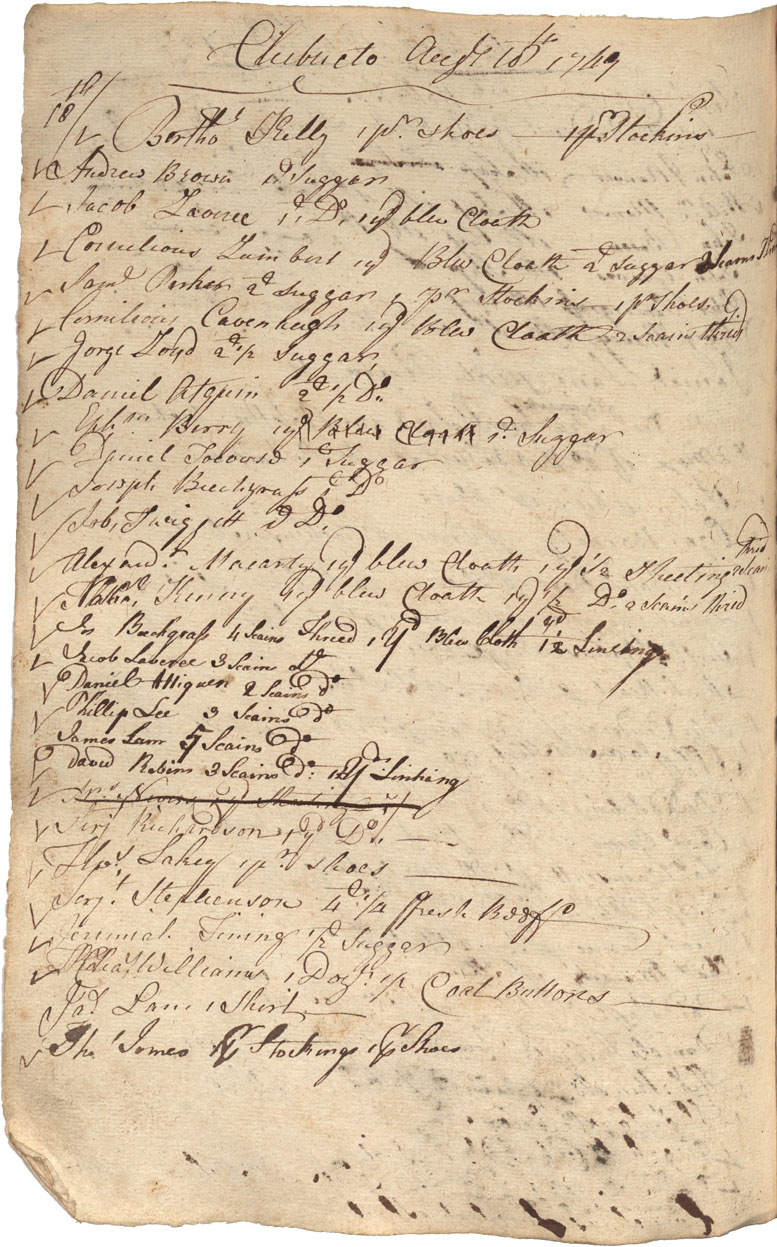 Chebucto Augt 18th 1749
18th/
Bartho. Kelly 1 pr. shoes — 1 pr Stockins
Andrew Brown 1d Suggar
Jacob Laveree 1d. Do. 1 yd blew Cloath
Cornelious Lambert 1 yd Blew Cloath 2d Suggar 2 Scains
Saml. Parker 2d Suggar 1 pr Stockins 1 pr Shoes
Cornilious Cavenheugh 1 yd blew Cloath 2 Scains thrid
Jorge Loyd 2d 1/2 Suggar
Daniel Atquin 2d 1/2 Do.
Ephm Berry 1 yd Blew Cloath 1d. Suggar
Daniel 1d Suggar
Joseph Beechgrass 1d Do
1d Do.
Alexandr. Macarty 1 yd blew Cloath 1 yd 1/2 Sheeting 2 Scains thrid
Nathal. Kinny 1 yd blew Cloath 1 yd 1/2 Do. 2 Scains thrid
Jos Beechgrass 4 Scains Thried 1 yd Blew Cloth 1 1/2 yd Lining
Jacob Laveree 3 Scains do
Daniel Attiquen 2 Scains do
Phillip Lee 3 Scains do
James Lam 5 Scains do
David Robins 3 Scains do. 1 yd Linhing
Serj Richardson 1 yd Do. —
Thos. Lakey 1 pr shoes —
Serjt. Stephenson 4d 1/4 fresh Beeff
Jeremiah Tining 1/2 Suggar
Williams 1 Dozn. Coat Buttones —
Jas. Lam 1 Shirt —
Tho James 1 pr Stockings 1 pr Shoes